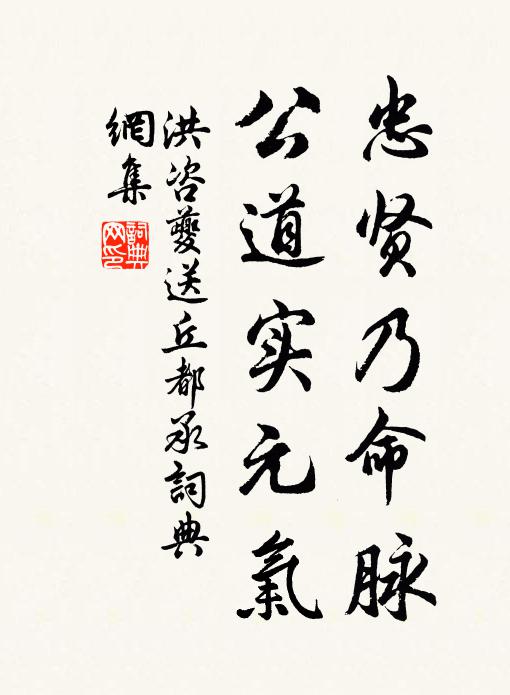 忠贤乃命脉
公道实元氣
洪咨夔送丘都承詞典
網集
詞典
网印